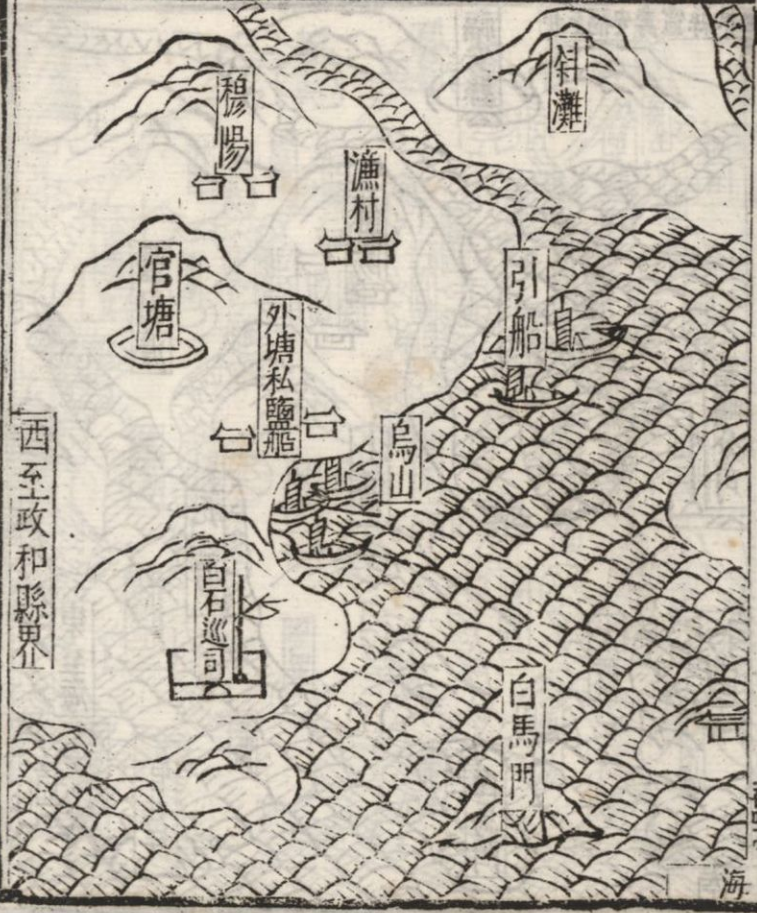 斜灘
穆陽
漁村
引船
官塘
外塘私鹽船
烏山
西至政和縣界
白石巡司
白馬門
海